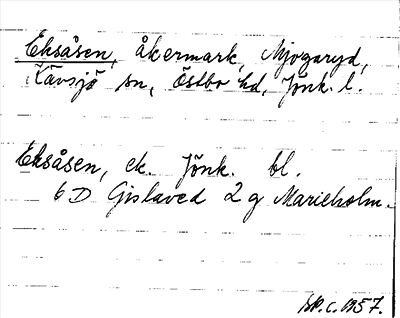 Eksåsen, åkermark, Mjogaryd,
Kävsjö sn, Östbo hd, Jönk. l.
Eksåsen, ek. Jönk. bl.
6 D Gislaved 2 g Marieholm.
1957.